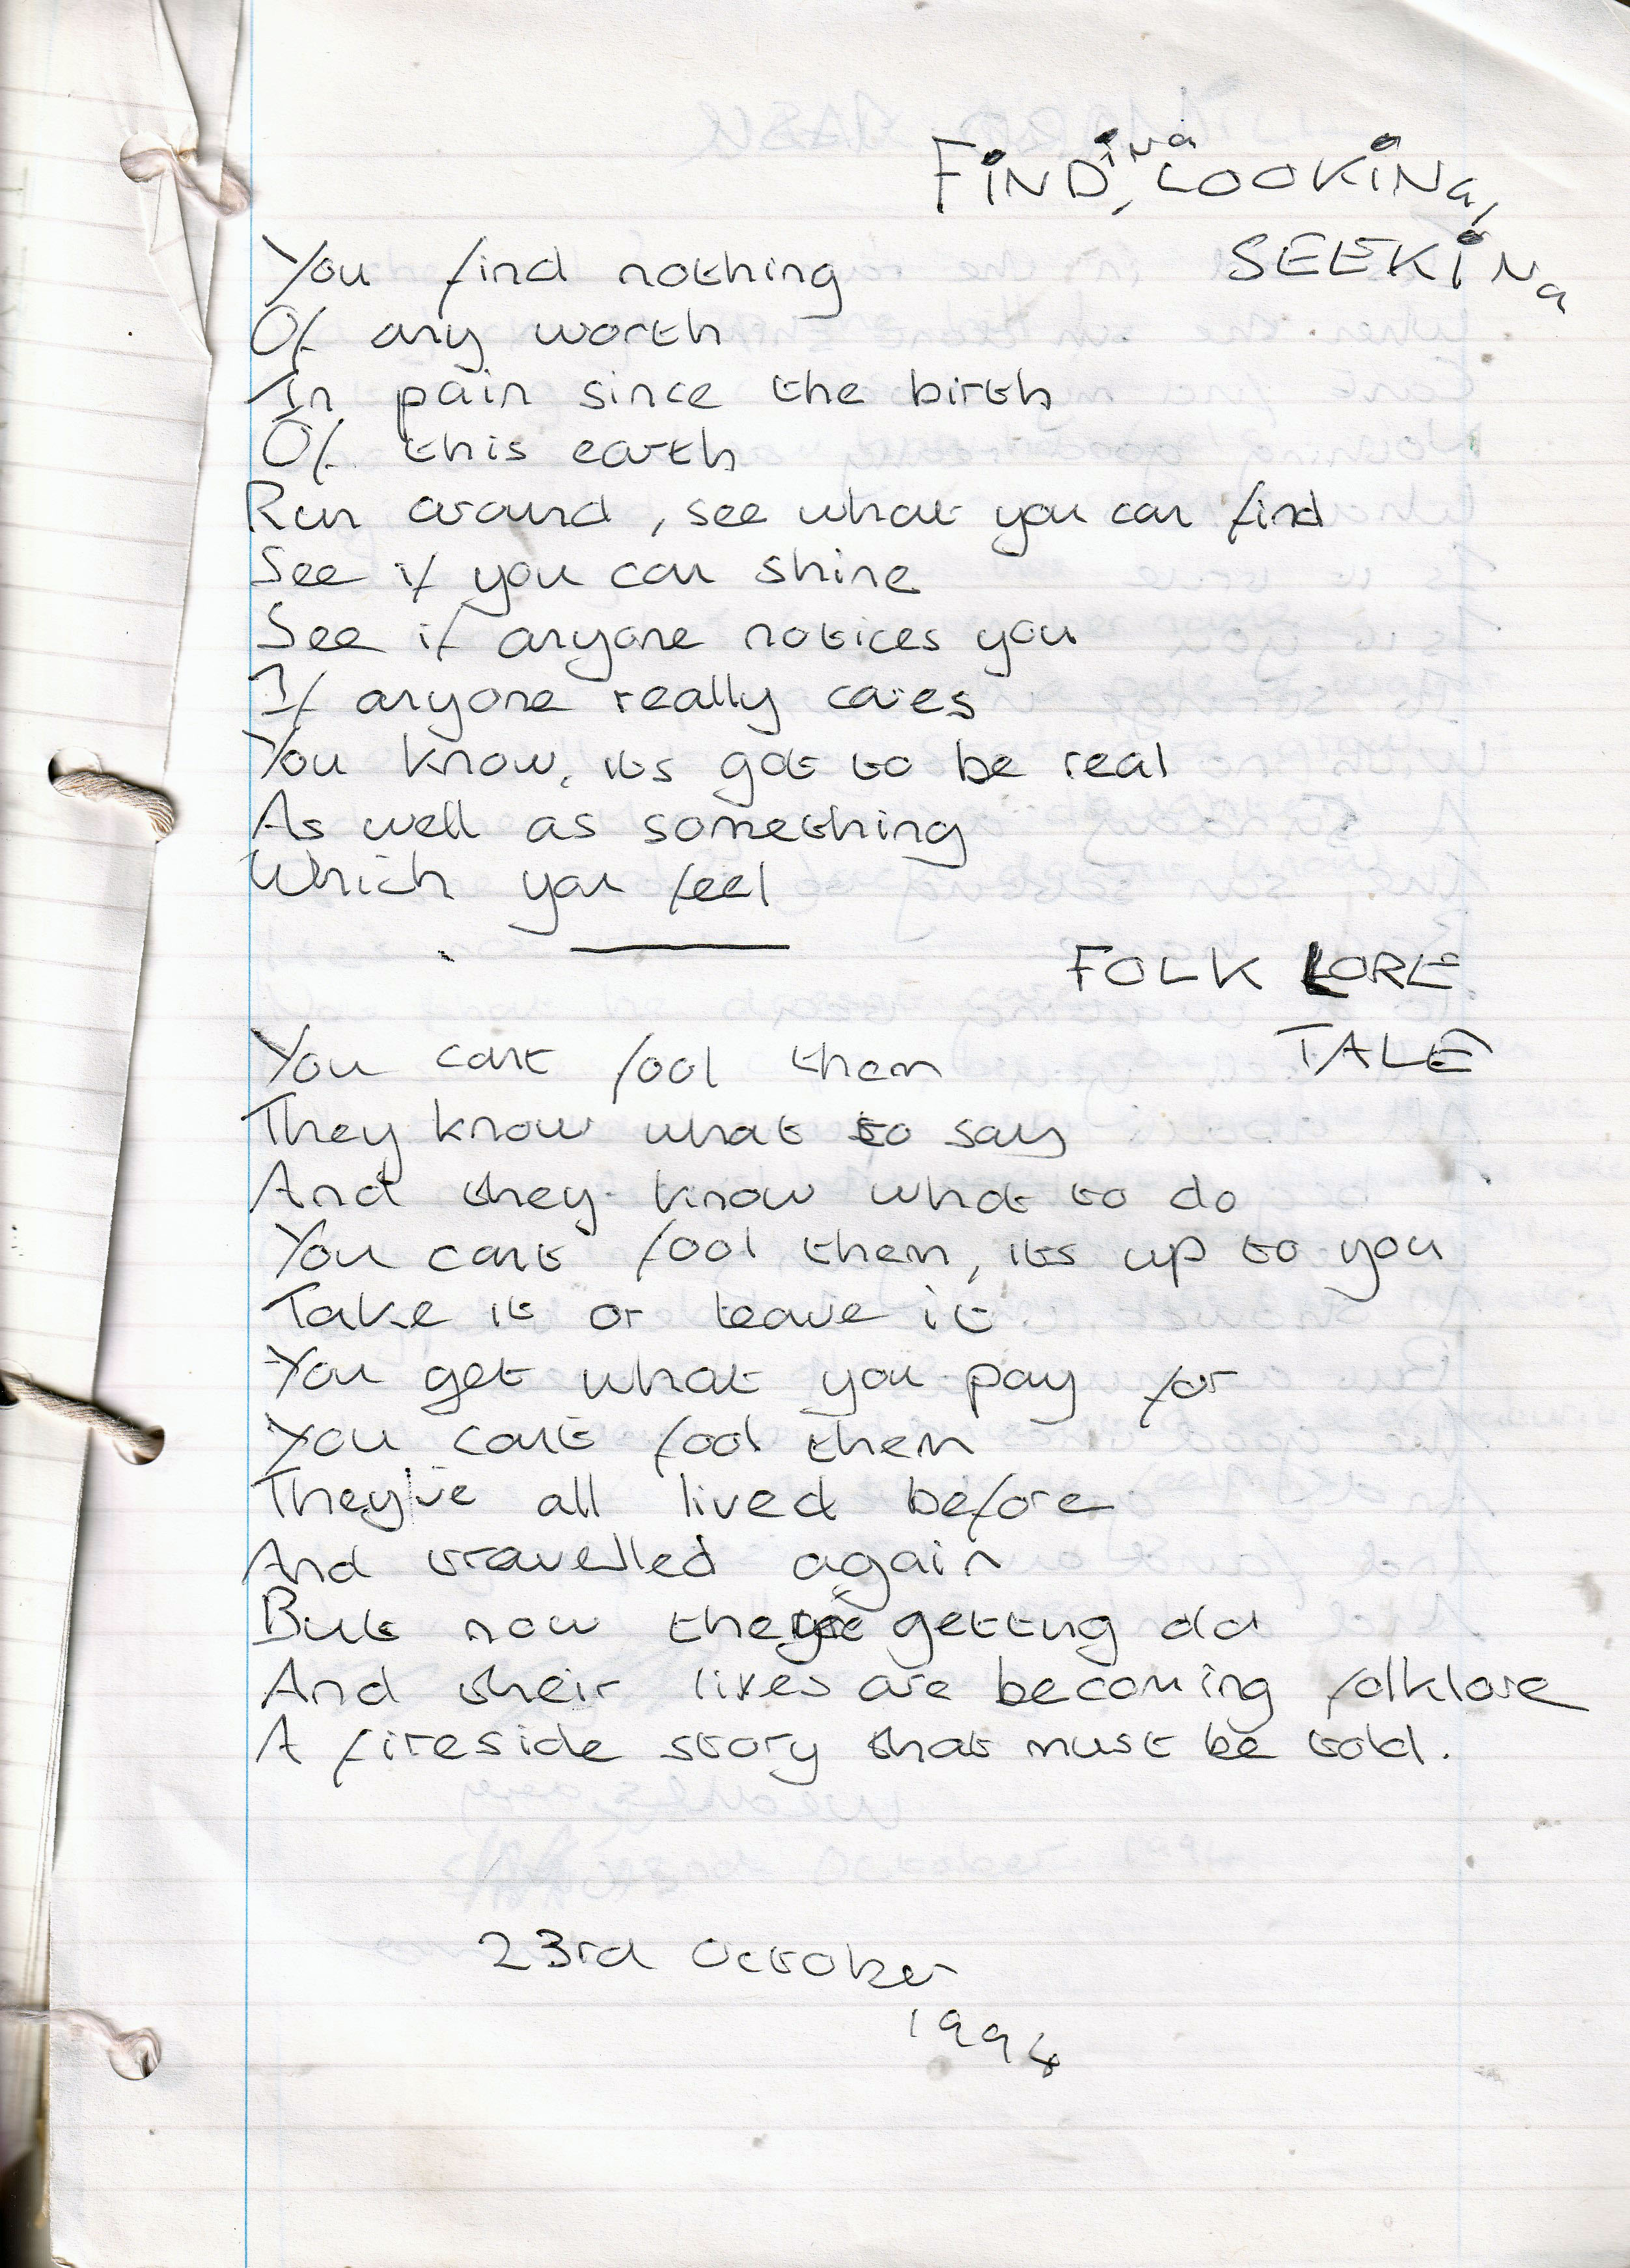 FiNDiNG, LOOKiNG,
SEEKiNG
You find nothing
Of any worth
In pain since the birth
Of this earth
Run around, see what you can find
See if you can shine
See if anyone notices you
If anyone really cares
You know, its got to be real
As well as something
Which you feel
FOLK LORE
TALE
You cant fool them
They know what to say
And they know what to do
You cant fool them, its up to you
Take it or leave it
You get what you pay for
You cant fool them
They've all lived before
And travelled again
But now they're getting old
And their lives are becoming folklore
A fireside story that must be told.
23rd October
1994